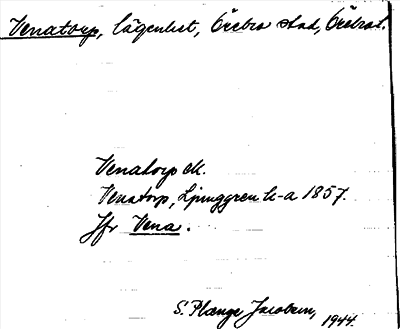 Venatorp, lägenhet, Örebro stad, Örebro l.
Venatorp ek.
Venatorp, Ljunggren h-a 1857.
Jfr Vena.
S. Plænge Jacobson, 1944.